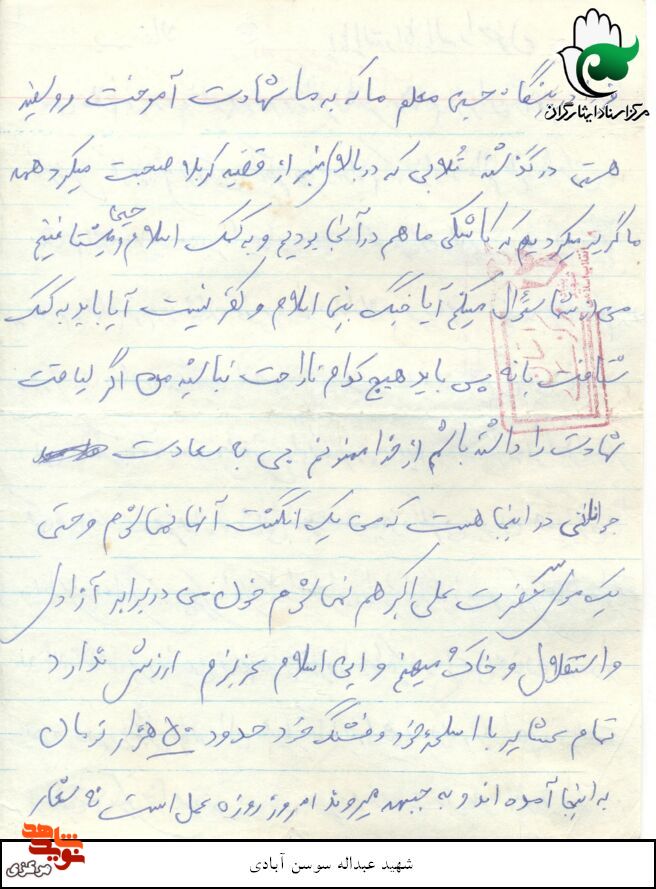 مرکز اسناد ایثارگران
حسین معلم ما که به ما شهادت آموخت رو سفید
هستی در گذشته که در بالای منبر از قضیه کربلا صحبت میکرد همه
ما گریه میکردیم که کاشکی ما هم در آنجا بودیم و به کمک اسلام و حسین میشتافتیم
من از شما سؤال میکنم آیا جنگ بین اسلام و کفر نیست آیا باید به کمک
شتافت یا نه پس باید هیچ کدام ناراحت نباشید من اگر لیاقت
شهادت را داشته باشم از خدا ممنونم چی به سعادت
جوانانی در اینجا هست که من یک انگشت آنها نمی‌شوم و حتی
یک موی حضرت علی اکبر هم نمی‌شوم خون من در برابر آزادی
و استقلال و خاک میهنم و این اسلام عزیزم ارزش ندارد
تمام عشایر با اسلحه خود و فشنگ خود حدود ۵۰ هزار تومان
به اینجا آمده اند و به جبهه میروند امروز روزه عمل است نه شعار
نوید شاهد
مرکزی
شهید عبداله سوسن آبادی